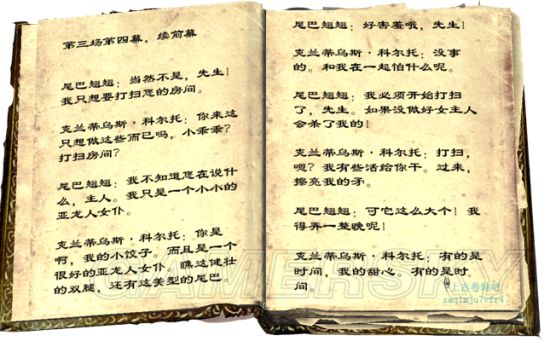 第三场第四幕，续前幕
尾巴翘翘：当然不是，先生！
我只想要打扫您的房间。
克兰蒂乌斯·科尔托：你来这
只想做这些而已吗，小乖乖？
打扫房间？
尾巴翘翘：我不知道您在说什
么，主人。我只是一个小小的
亚龙人女仆。
克兰蒂乌斯·科尔托：你是
啊，我的小饺子。而且是一个
很好的亚龙人女仆。瞧这健壮
的双腿，还有这美型的尾巴。
尾巴翘翘：好害羞哦，先生！
克兰蒂乌斯·科尔托：没事
的。和我在一起怕什么呢。
尾巴翘翘：我必须开始打扫
了，先生。如果没做好女主人
会杀了我的！
克兰蒂乌斯·科尔托：打扫，
嗯？我有些活给你干。过来，
擦亮我的矛。
尾巴翘翘：可它这么大个！我
得弄一整晚呢！
克兰蒂乌斯·科尔托：有的是
时间，我的甜心。有的是时
间。
GAMERSKY
上古卷轴吧
zaqimju7vfr4